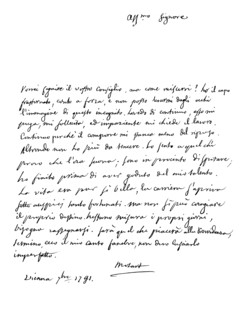 Aff.mo Signore
Vorrei seguire il vostro consiglio, ma come riuscirci? ho il capo
frastornato, conto a forza, e non posso levarmi dagli occhi
l'immagine di questo incognito. Lo vedo di continuo, esso mi
prega, mi sollecita, ed impaziente mi chiede il lavoro.
Continuo perchè il comporre mi stanca meno del riposo.
Altronde non ho più da tremere. Lo sento a quel che
provo che l'ora suona; sono in procinto di spirare;
ho finito prima di aver goduto del mio talento.
La vita era pur sì bella, la carriera s'apriva
sotto auspici tanto fortunati, ma non si può cangiare
il proprio destino. Nessuno misura i propri giorni,
bisogna rassegnarsi. Sarà quel che piacerà alla Provvidenza,
termino, ecco il mio canto funebre, non devo lasciarlo
imperfetto.
Mozart
Vienna 7bre 1791.